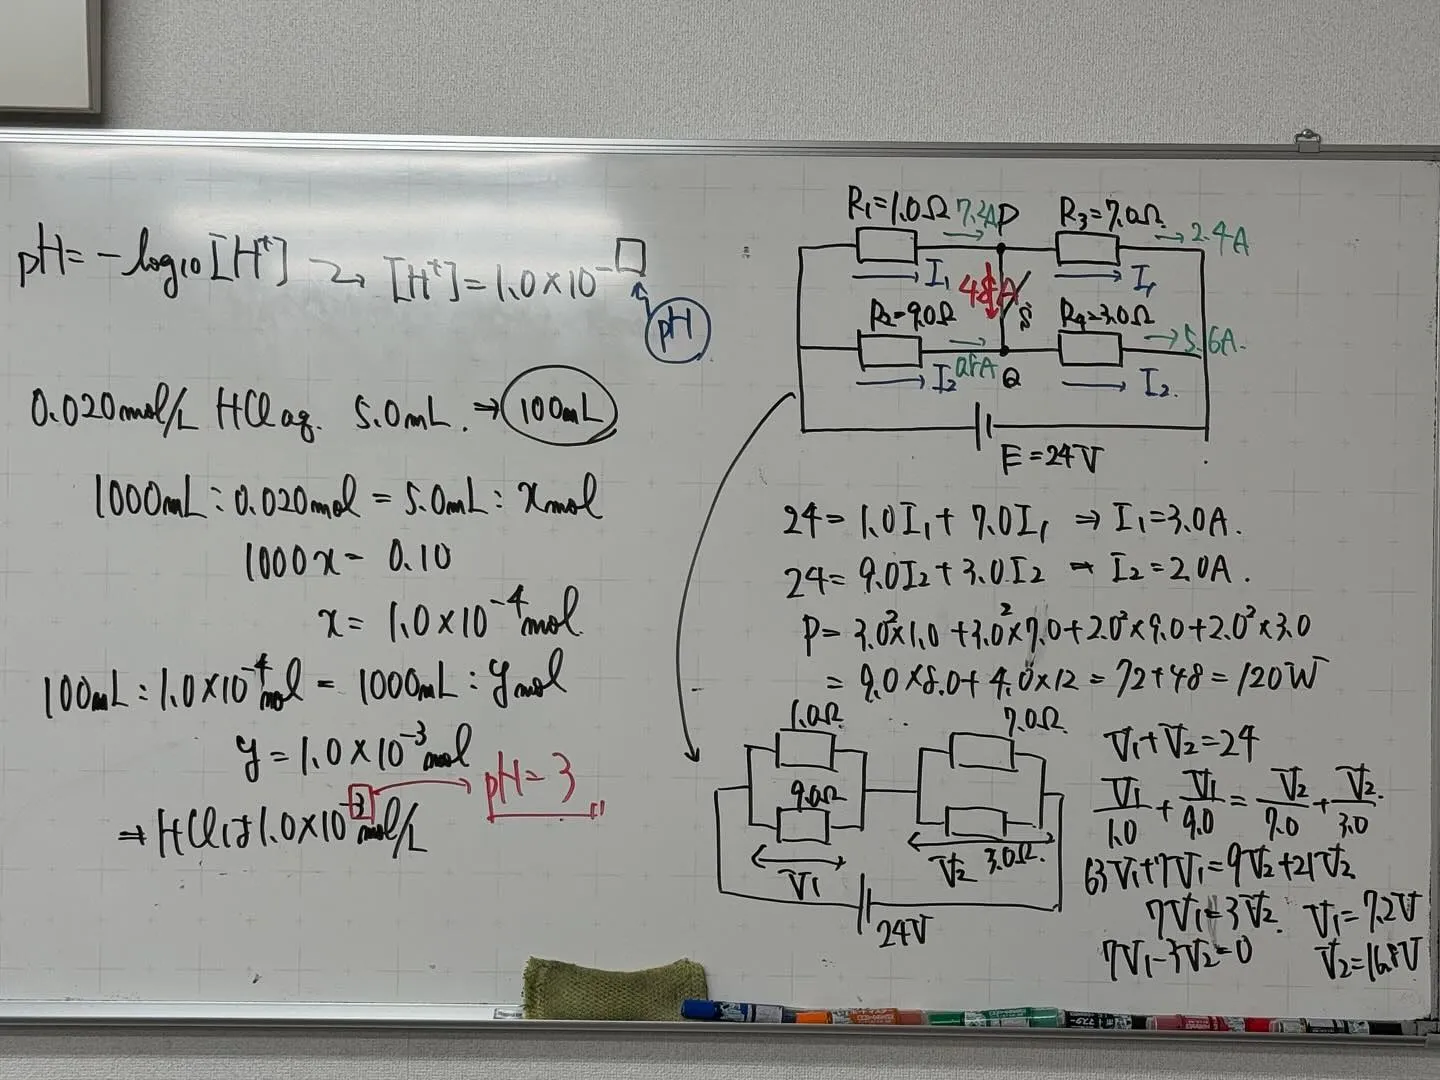 pH = -log₁₀[H⁺] → [H⁺] = 1.0×10⁻□
pH
0.020mol/L HCl aq. 5.0mL. → 100mL
1000mL : 0.020mol = 5.0mL : x mol
1000x = 0.10
x = 1.0×10⁻⁴ mol
100mL : 1.0×10⁻⁴ mol = 1000mL : y mol
y = 1.0×10⁻³ mol
pH = 3
⇒ HClは1.0×10⁻³ mol/L
R₁=1.0Ω 7.2A P R₃=7.0Ω → 2.4A
I₁ I₁
R₂=9.0Ω S R₄=3.0Ω → 5.6A.
I₂ Q I₂
E=24V
24 = 1.0I₁ + 7.0I₁ ⇒ I₁=3.0A.
24 = 9.0I₂ + 3.0I₂ → I₂=2.0A.
P = 3.0²×1.0 + 3.0²×7.0 + 2.0²×9.0 + 2.0²×3.0
= 9.0×8.0 + 4.0×12 = 72+48 = 120W
1.0Ω 7.0Ω
9.0Ω
V₁ V₂ 3.0Ω.
24V
V₁+V₂=24
V₁/1.0 + V₁/9.0 = V₂/7.0 + V₂/3.0
63V₁+7V₁=9V₂+21V₂
7V₁=3V₂. V₁=7.2V
7V₁-3V₂=0 V₂=16.8V